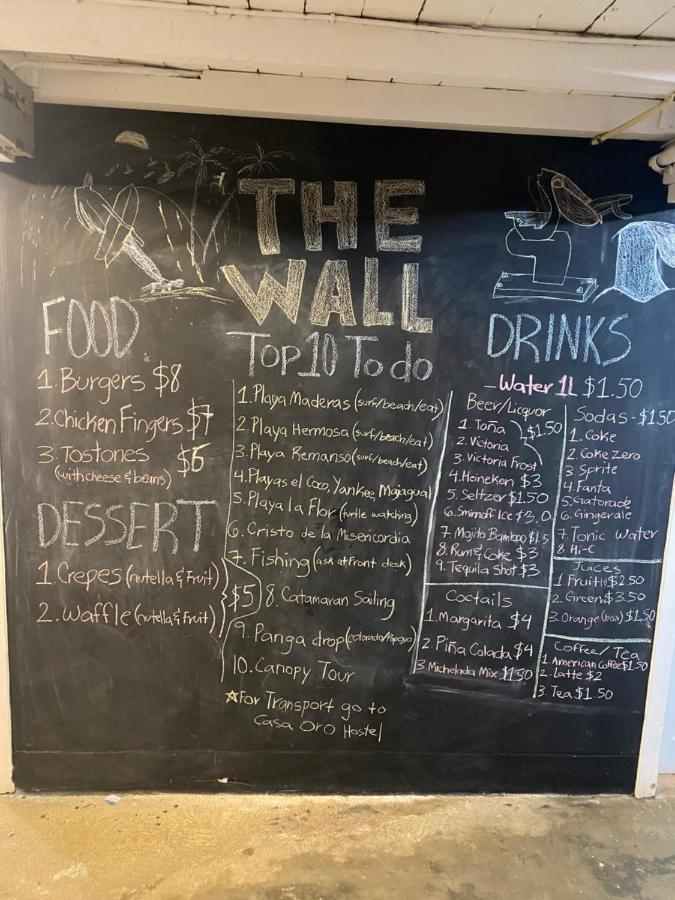 THE
WALL
FOOD
1. Burgers $8
2. Chicken Fingers $7
3. Tostones $6
(with cheese & beans)
DESSERT
1. Crepes (nutella & Fruit)
2. Waffle (nutella & Fruit)
$5
Top 10 To do
1. Playa Maderas (surf/beach/eat)
2 Playa Hermosa (surf/beach/eat)
3. Playa Remanso (surf/beach/eat)
4. Playas el Coco, Yankee, Majagual
5. Playa la Flor (turtle watching)
6. Cristo de la Misericordia
7. Fishing (ask at front desk)
8. Catamaran Sailing
9. Panga drop (colorado/Popoyo)
10. Canopy Tour
☆For Transport go to
Casa Oro Hostel
DRINKS
- Water 1L $1.50
Beer/Liquor
1. Toña
2. Victoria
3. Victoria Frost
$1.50
4. Heineken $3
5. Seltzer $1.50
6. Smirnoff Ice $3.0
7. Mojito Bamboo $1.5
8. Rum & Coke $3
9. Tequila Shot $3
Coctails
1. Margarita $4
2. Piña Colada $4
3 Michelada Mix $1.50
Sodas - $1.50
1. Coke
2. Coke Zero
3. Sprite
4. Fanta
5. Gatorade
6. Gingerale
7. Tonic Water
8. Hi-C
Juices
1 Fruit $2.50
2. Green $3.50
3. Orange (box) $1.50
Coffee/Tea
1. American Coffee $1.50
2. Latte $2
3. Tea $1.50